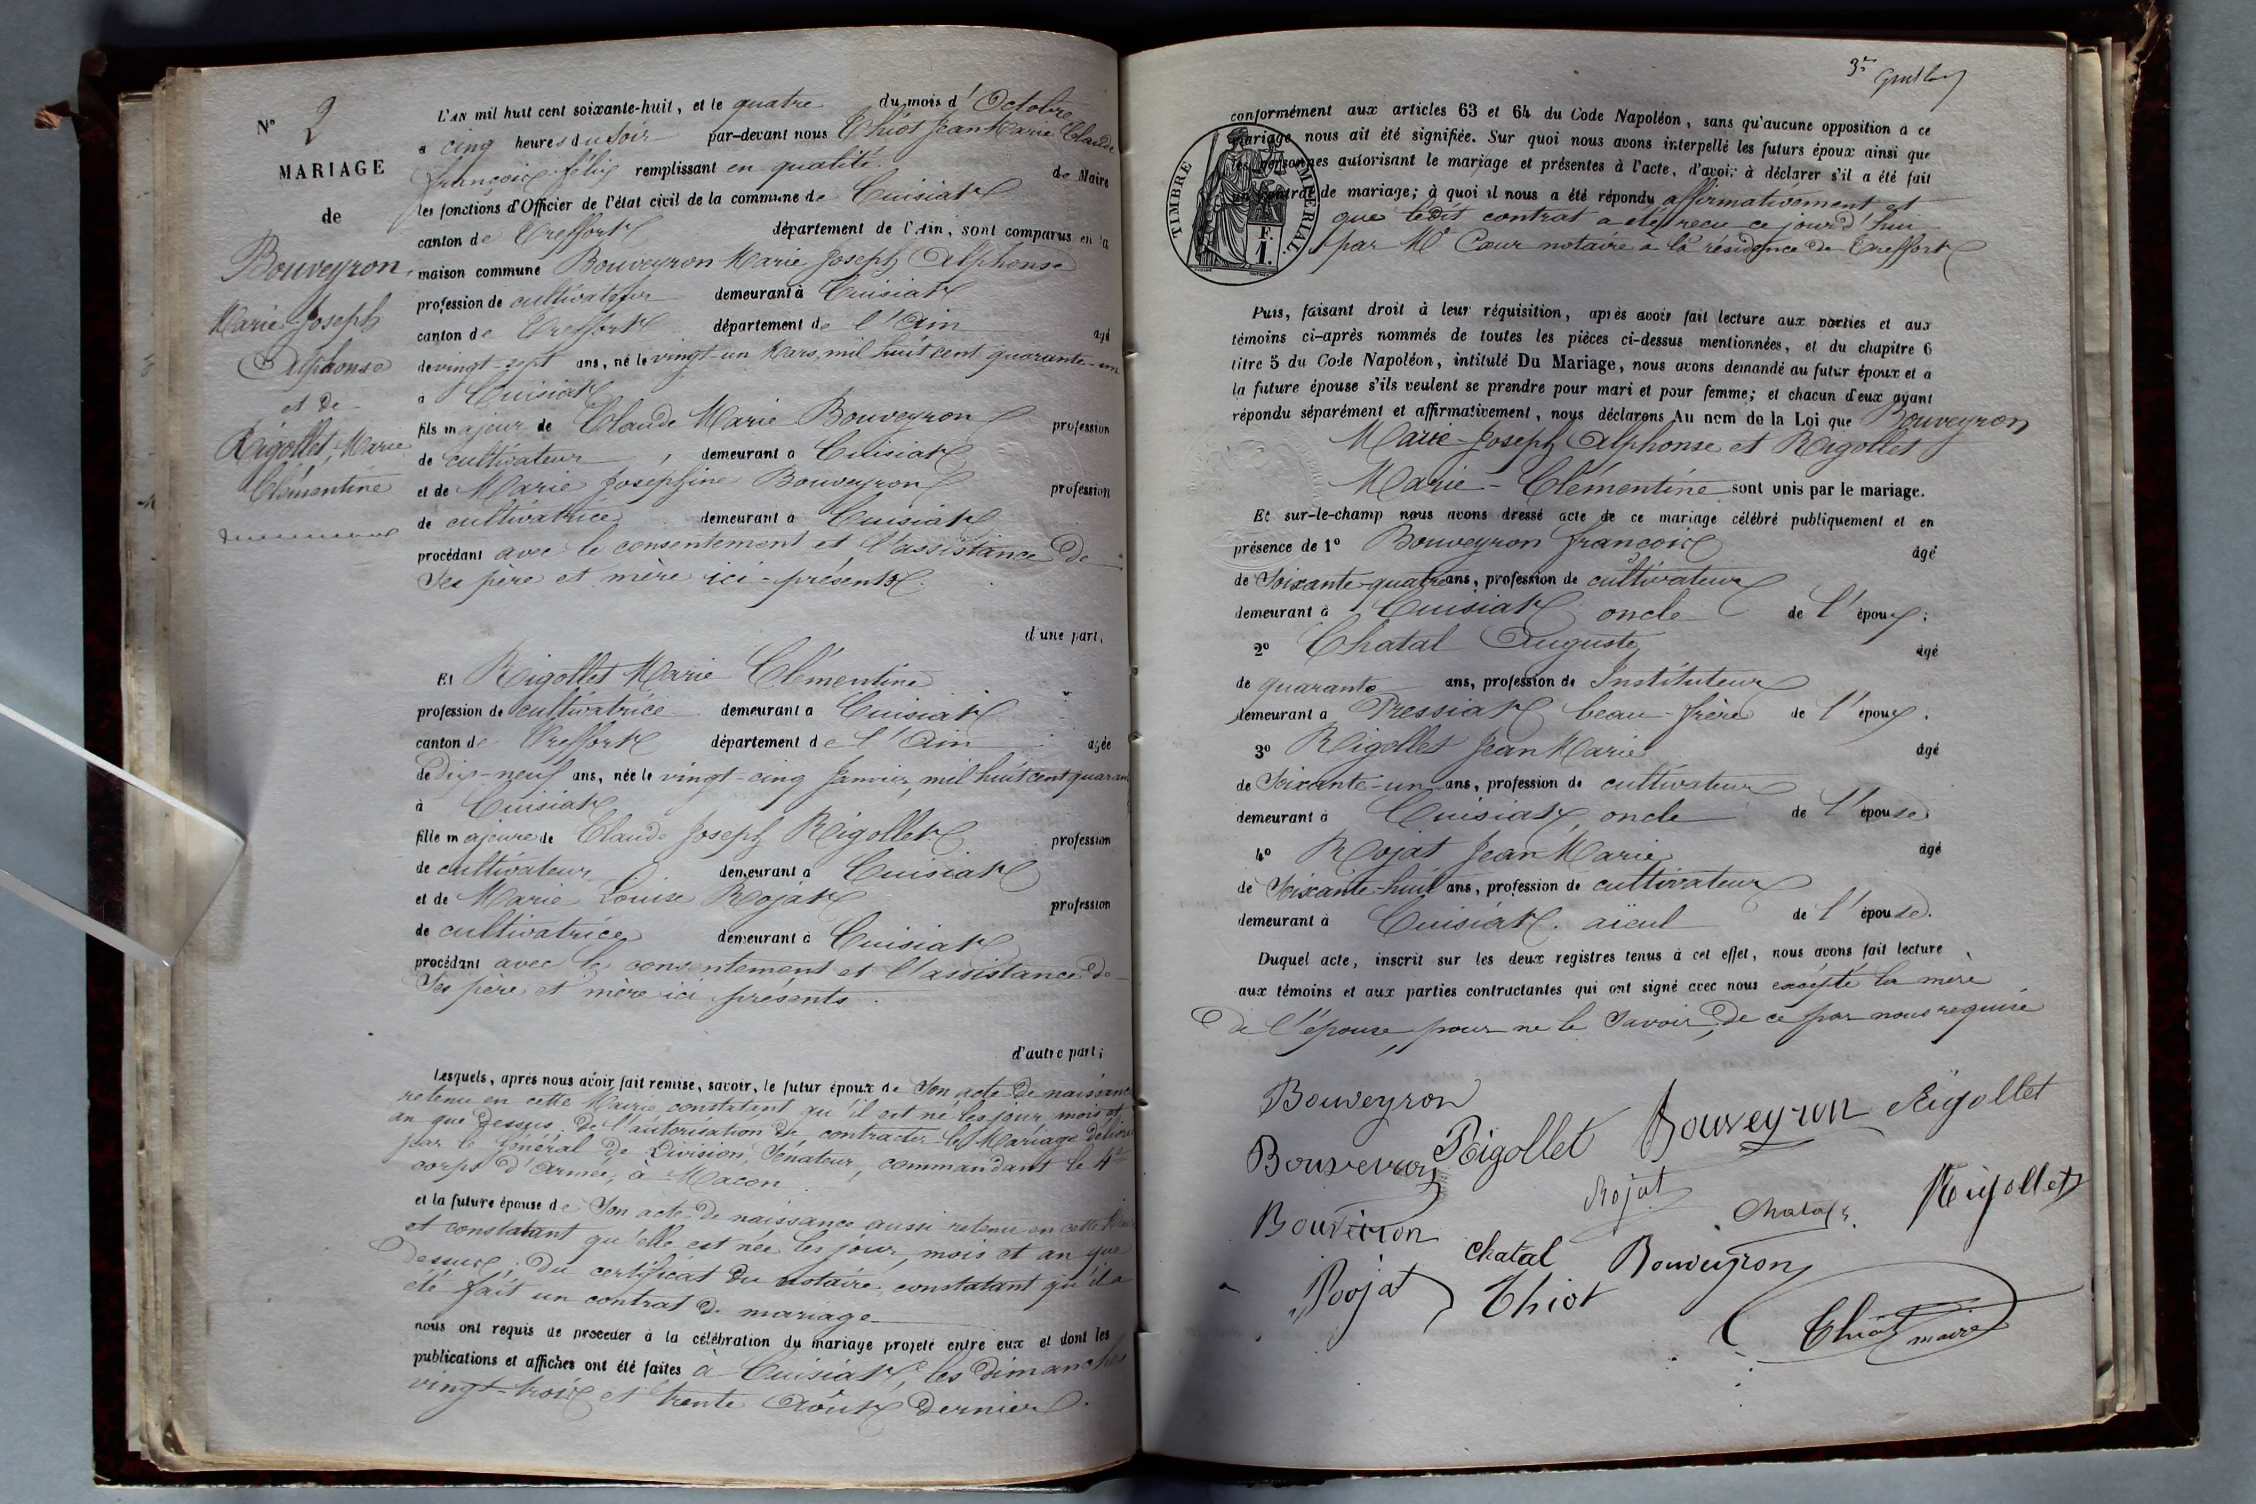 N° 2
MARIAGE
de
Bouveyron,
Marie Joseph
Alphonse
et de
Rigollet, Marie
Clémentine
L'AN mil huit cent soixante-huit, et le quatre du mois d'Octobre
a cinq heures du Soir par-devant nous Thiot Jean Marie Claude
françois félix remplissant en qualité de Maire
les fonctions d'Officier de l'état civil de la commune de Cuisiat
canton de Treffort département de l'Ain, sont comparus en la
maison commune Bouveyron Marie Joseph Alphonse
profession de cultivateur demeurant à Cuisiat
canton de Treffort département de l'Ain agé
de vingt-sept ans, né le vingt-un Mars, mil huit cent quarante-un
a Cuisiat
fils majeur de Claude Marie Bouveyron profession
de cultivateur, demeurant a Cuisiat
et de Marie Josephine Bouveyron profession
de cultivatrice demeurant a Cuisiat
procédant avec le consentement et l'assistance de
Ses père et mère ici-présents.
d'une part,
Et Rigollet Marie Clémentine
profession de cultivatrice demeurant a Cuisiat
canton de Treffort département de l'Ain agée
de Dix-neuf ans, née le vingt-cinq Janvier, mil huit cent quaran
à Cuisiat
fille majeure de Claude Joseph Rigollet profession
de cultivateur demeurant a Cuisiat
et de Marie Louise Rojat profession
de cultivatrice demeurant à Cuisiat
procédant avec le consentement et l'assistance de
Ses père et mère ici présents.
d'autre part;
Lesquels, après nous avoir fait remise, savoir, le futur époux de Son acte de naissance
retenu en cette Mairie constatant qu'il est né les jour, mois et
an que dessus. De l'autorisation de contracter le Mariage délivré
par le Général de Division, Sénateur, commandant le 4e
corps d'Armée, à Macon.
et la future épouse de Son acte de naissance aussi retenu en cette Mairie
et constatant qu'elle est née les jour, mois et an que
dessus; Du certificat du notaire constatant qu'il a
été fait un contrat de mariage
nous ont requis de procéder à la célébration du mariage projeté entre eux et dont les
publications et affiches ont été faites à Cuisiat, les dimanches
vingt-trois et trente Août dernier.
3e
conformément aux articles 63 et 64 du Code Napoléon, sans qu'aucune opposition à ce
mariage nous ait été signifiée. Sur quoi nous avons interpellé les futurs époux ainsi que
les personnes autorisant le mariage et présentes à l'acte, d'avoir à déclarer s'il a été fait
un contrat de mariage; à quoi il nous a été répondu affirmativement et
que ledit contrat a été recu ce jourd'hui
par Me Cœur notaire à la résidence de Treffort
TIMBRE IMPERIAL
F.
1.
Puis, faisant droit à leur réquisition, après avoir fait lecture aux parties et aux
témoins ci-après nommés de toutes les pièces ci-dessus mentionnées, et du chapitre 6
titre 5 du Code Napoléon, intitulé Du Mariage, nous avons demandé au futur époux et a
la future épouse s'ils veulent se prendre pour mari et pour femme; et chacun d'eux ayant
répondu séparément et affirmativement, nous déclarons Au nom de la Loi que Bouveyron
Marie-Joseph Alphonse et Rigollet
Marie-Clémentine sont unis par le mariage.
Et sur-le-champ nous avons dressé acte de ce mariage célébré publiquement et en
présence de 1° Bouveyron françois âgé
de Soixante-quatre ans, profession de cultivateur
demeurant à Cuisiat oncle de l'époux;
2° Chatal Auguste âgé
de quarante ans, profession de Instituteur
demeurant a Pressiat beau-frère de l'époux.
3° Rigollet Jean Marie âgé
de Soixante-un ans, profession de cultivateur
demeurant à Cuisiat, oncle de l'épouse
4° Rojat Jean Marie âgé
de Soixante-huit ans, profession de cultivateur
demeurant à Cuisiat. aïeul de l'épouse.
Duquel acte, inscrit sur les deux registres tenus à cet effet, nous avons fait lecture
aux témoins et aux parties contractantes qui ont signé avec nous excepté la mère
De l'épouse pour ne le Savoir, de ce par nous requise
Bouveyron
Bouveyron Rigollet Bouveyron Rigollet
Rojat Chatal Rigollet
Bouveiron Chatal Bouveyron
Roojat Thiot Thiot maire